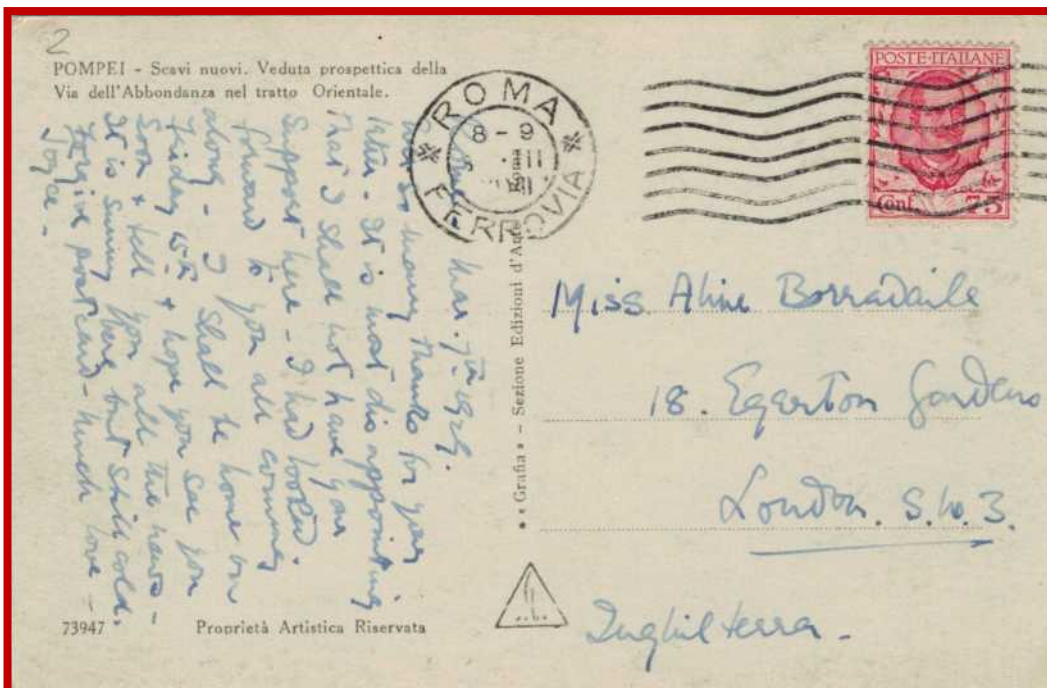 2
POMPEI - Scavi nuovi. Veduta prospettica della
Via dell'Abbondanza nel tratto Orientale.
ROMA
8 - 9
FERROVIA
POSTE·ITALIANE
Cent. 75
Rome. Mar. 7th 1929.
so many thanks for your
letter - It is most disappointing
that I shall not have your
support here - I had looked
forward to you all coming
along - I shall be home on
Friday 15th & hope you see you
soon & tell you all the news -
It is sunny here but still cold.
Forgive post card - Much love -
Joyce -
« Grafia » - Sezione Edizioni d'Arte Roma
Miss Aline Borradaile
18. Egerton Gardens
London. S.W.3.
Inghilterra -
73947 Proprietà Artistica Riservata